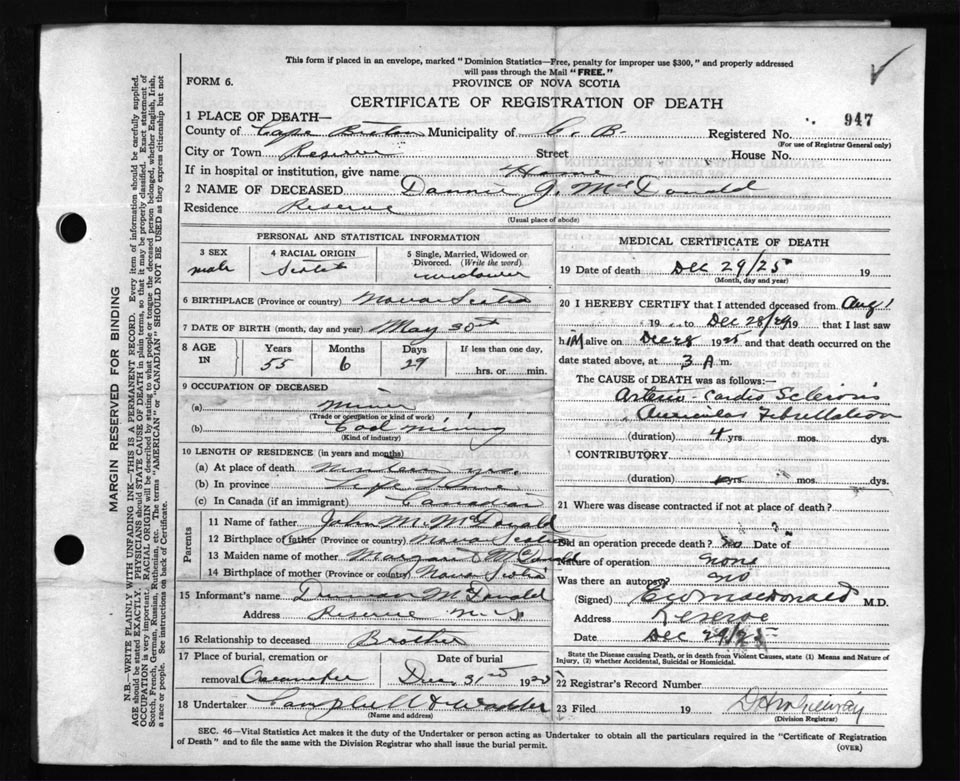 This form if placed in an envelope, marked "Dominion Statistics—Free, penalty for improper use $300," and properly addressed
will pass through the Mail "FREE."
FORM 6.
PROVINCE OF NOVA SCOTIA
CERTIFICATE OF REGISTRATION OF DEATH
1 PLACE OF DEATH—
County of Cape Breton Municipality of C. B. Registered No. 947
(For use of Registrar General only)
City or Town Reserve Street House No.
If in hospital or institution, give name Home
2 NAME OF DECEASED Dannie J. McDonald
Residence Reserve
(Usual place of abode)
PERSONAL AND STATISTICAL INFORMATION
3 SEX male
4 RACIAL ORIGIN Scotch
5 Single, Married, Widowed or
Divorced. (Write the word).
widower
6 BIRTHPLACE (Province or country) Nova Scotia
7 DATE OF BIRTH (month, day and year) May 30th
8 AGE IN
Years 55
Months 6
Days 29
If less than one day,
hrs. or min.
9 OCCUPATION OF DECEASED
(a) miner
(Trade or occupation or kind of work)
(b) Coal mining
(Kind of industry)
10 LENGTH OF RESIDENCE (in years and months)
(a) At place of death yrs.
(b) In province Life Time
(c) In Canada (if an immigrant) Canadian
Parents
11 Name of father John M. McDonald
12 Birthplace of father (Province or country) Nova Scotia
13 Maiden name of mother Margaret McDonald
14 Birthplace of mother (Province or country) Nova Scotia
15 Informant's name Duncan McDonald
Address Reserve
16 Relationship to deceased Brother
17 Place of burial, cremation or
removal
Date of burial
Dec 31st 1925
18 Undertaker Campbell
(Name and address)
MEDICAL CERTIFICATE OF DEATH
19 Date of death Dec 29/25 19
(Month, day and year)
20 I HEREBY CERTIFY that I attended deceased from Aug 1
19 to Dec 28/29 19 that I last saw
h im alive on Dec 28 1925 and that death occurred on
date stated above, at 3 A m.
The CAUSE of DEATH was as follows:—
Arterio-Cardio Sclerosis
Auricular Fibrillation
(duration) 4 yrs. mos. dys.
CONTRIBUTORY
(duration) yrs. mos. dys.
21 Where was disease contracted if not at place of death?
?
Did an operation precede death? No Date of
Nature of operation none
Was there an autopsy? no
(Signed) MacDonald M.D.
Address Reserve
Date Dec 29/25
State the Disease causing Death, or in death from Violent Causes, state (1) Means and Nature of
Injury, (2) whether Accidental, Suicidal or Homicidal.
22 Registrar's Record Number
23 Filed 19
(Division Registrar)
SEC. 46—Vital Statistics Act makes it the duty of the Undertaker or person acting as Undertaker to obtain all the particulars required in the "Certificate of Registration
of Death" and to file the same with the Division Registrar who shall issue the burial permit.
(OVER)
MARGIN RESERVED FOR BINDING
N.B.—WRITE PLAINLY WITH UNFADING INK—THIS IS A PERMANENT RECORD. Every item of information should be carefully supplied.
AGE should be stated EXACTLY. PHYSICIANS should STATE CAUSE OF DEATH in plain terms, so that it may be properly classified. Exact statement of
OCCUPATION is very important. RACIAL ORIGIN will be described by stating to what people or tongue the deceased person belonged, whether English, Irish,
Scotch, French, German, Russian, Ruthenian, etc. The terms "AMERICAN" or "CANADIAN" SHOULD NOT BE USED as they express citizenship but not
a race or people. See instructions on back of Certificate.